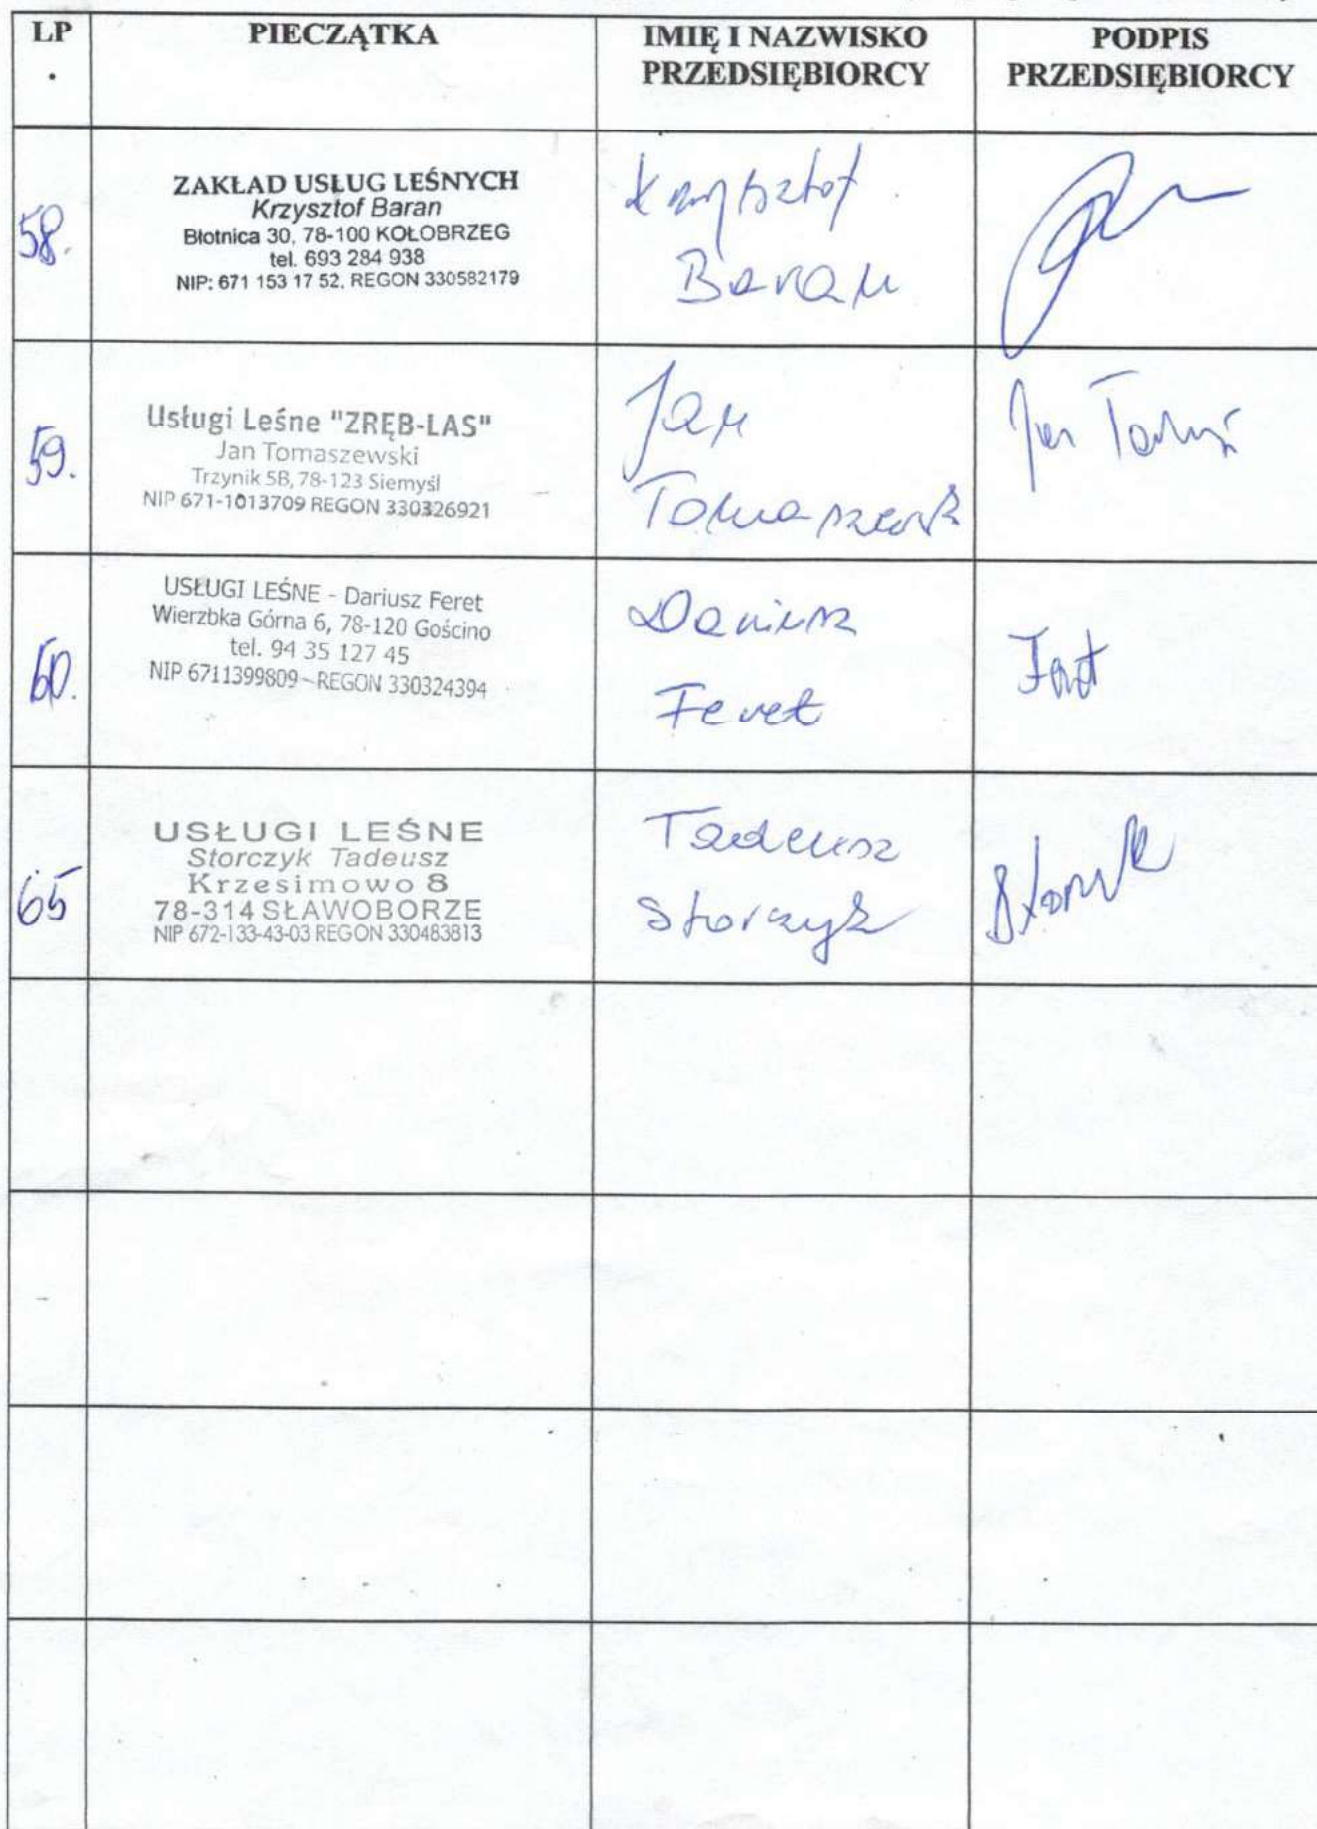 LP
.
PIECZĄTKA
IMIĘ I NAZWISKO
PRZEDSIĘBIORCY
PODPIS
PRZEDSIĘBIORCY
58.
ZAKŁAD USŁUG LEŚNYCH
Krzysztof Baran
Błotnica 30, 78-100 KOŁOBRZEG
tel. 693 284 938
NIP: 671 153 17 52, REGON 330582179
Krzysztof
Baran
59.
Usługi Leśne "ZRĘB-LAS"
Jan Tomaszewski
Trzynik 5B, 78-123 Siemyśl
NIP 671-1013709 REGON 330326921
Jan
Tomaszewsk
Jan
60.
USŁUGI LEŚNE - Dariusz Feret
Wierzbka Górna 6, 78-120 Gościno
tel. 94 35 127 45
NIP 6711399809 - REGON 330324394
Dariusz
Feret
Feret
65
USŁUGI LEŚNE
Storczyk Tadeusz
Krzesimowo 8
78-314 SŁAWOBORZE
NIP 672-133-43-03 REGON 330483813
Tadeusz
Storczyk
Storczyk